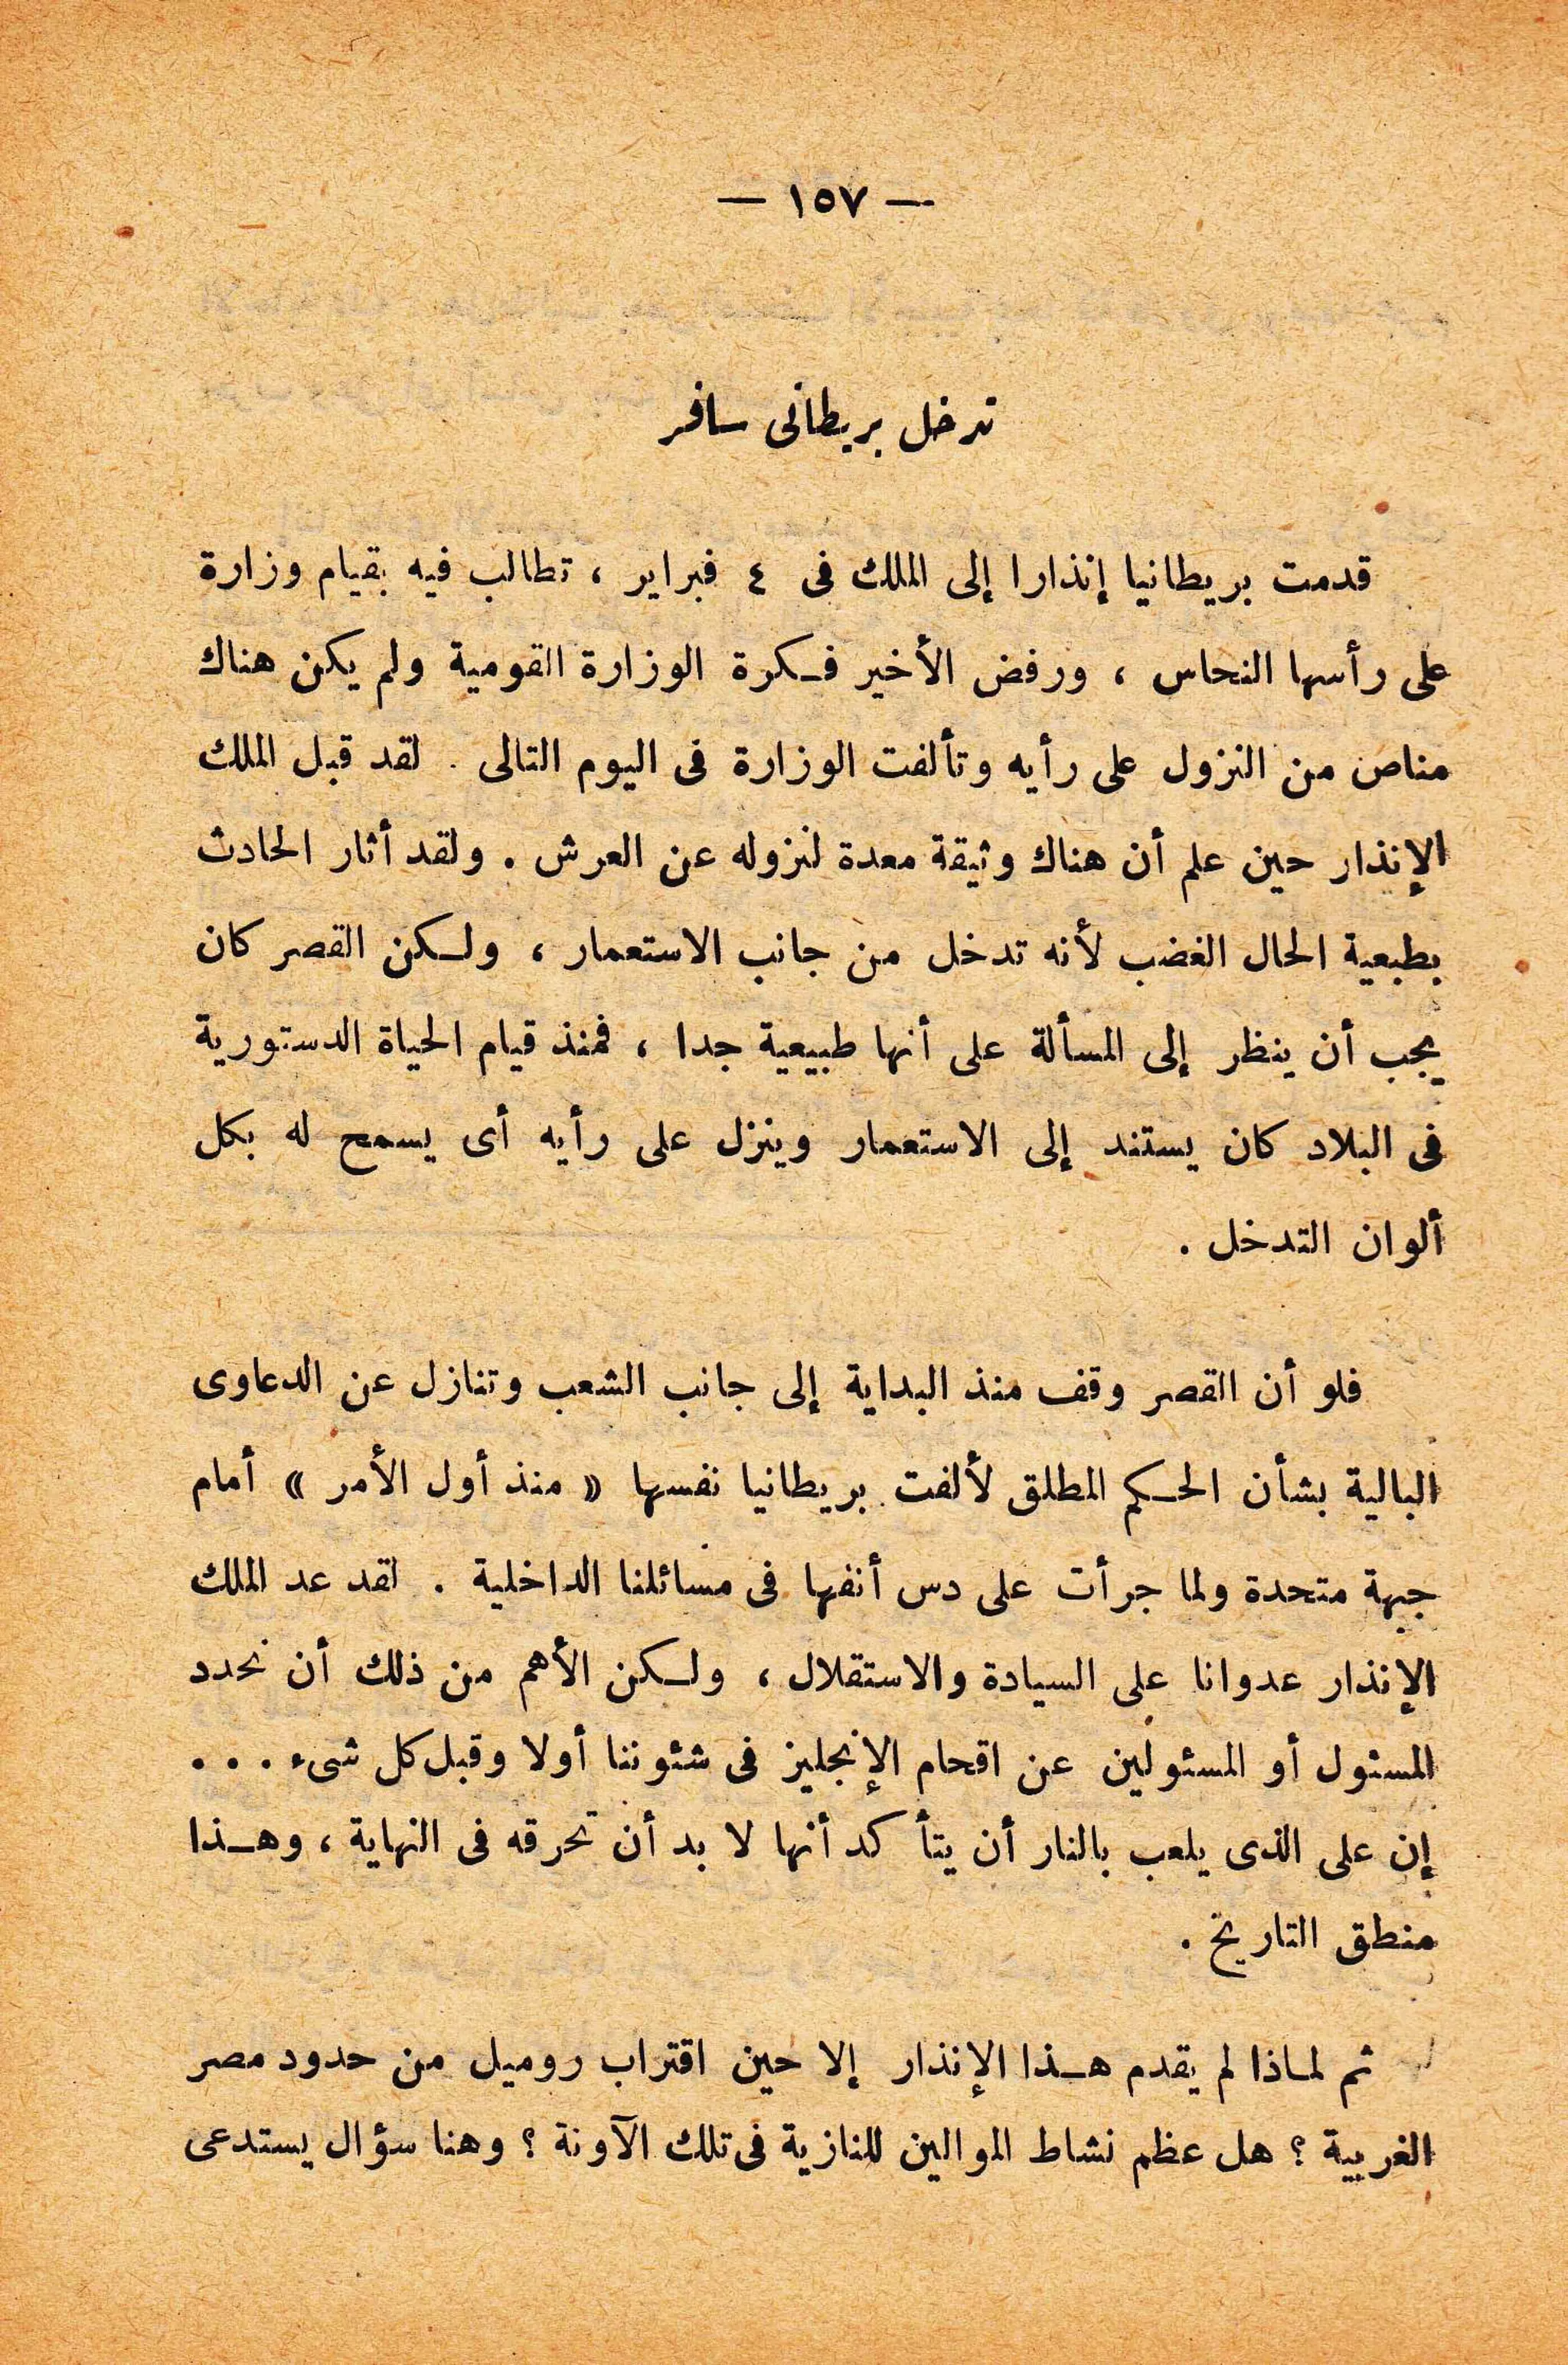 — ١٥٧ —
تدخل بريطانى سافر
قدمت بريطانيا إنذارا إلى الملك فى ٤ فبراير ، تطالب فيه بقيام وزارة
على رأسها النحاس ، ورفض الأخير فكرة الوزارة القومية ولم يكن هناك
مناص من النزول على رأيه وتألفت الوزارة فى اليوم التالى . لقد قبل الملك
الإنذار حين علم أن هناك وثيقة معدة لنزوله عن العرش . ولقد أثار الحادث
بطبعية الحال الغضب لأنه تدخل من جانب الاستعمار ، ولكن القصر كان
يجب أن ينظر إلى المسألة على أنها طبيعية جدا ، فمنذ قيام الحياة الدستورية
فى البلاد كان يستند إلى الاستعمار وينزل على رأيه أى يسمح له بكل
ألوان التدخل .
فلو أن القصر وقف منذ البداية إلى جانب الشعب وتنازل عن الدعاوى
البالية بشأن الحكم المطلق لألفت بريطانيا نفسها « منذ أول الأمر » أمام
جبهة متحدة ولما جرأت على دس أنفها فى مسائلنا الداخلية . لقد عد الملك
الإنذار عدوانا على السيادة والاستقلال ، ولكن الأهم من ذلك أن نحدد
المسئول أو المسئولين عن اقحام الإنجليز فى شئوننا أولا وقبل كل شىء . . .
إن على الذى يلعب بالنار أن يتأكد أنها لا بد أن تحرقه فى النهاية ، وهذا
منطق التاريخ .
ثم لماذا لم يقدم هذا الإنذار إلا حين اقتراب روميل من حدود مصر
الغربية ؟ هل عظم نشاط الموالين للنازية فى تلك الآونة ؟ وهنا سؤال يستدعى